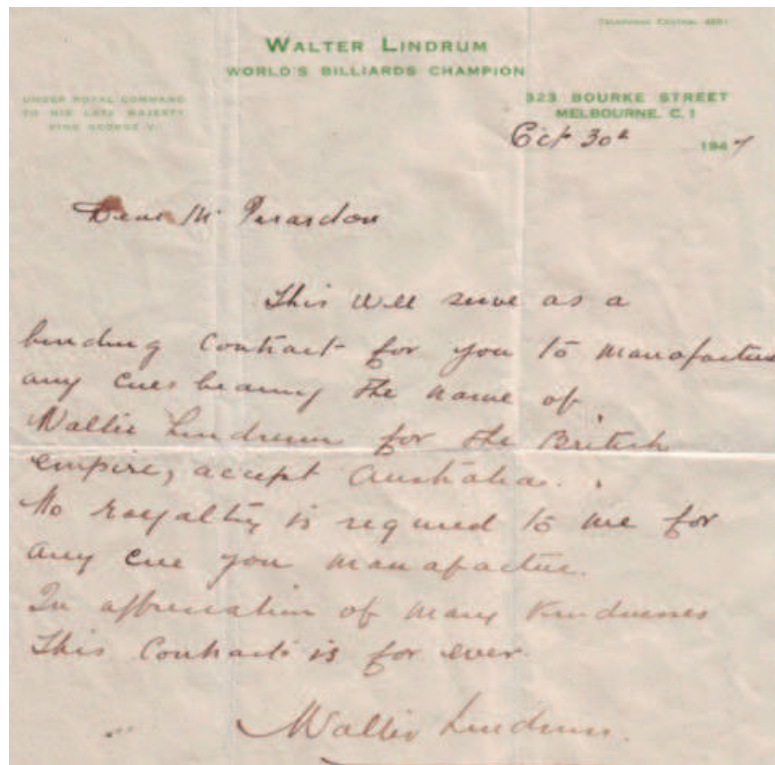 TELEPHONE CENTRAL
WALTER LINDRUM
WORLD'S BILLIARDS CHAMPION
UNDER ROYAL COMMAND
TO HIS LATE MAJESTY
KING GEORGE V.
323 BOURKE STREET
MELBOURNE. C.1
Oct 30th 1947
Dear Mr
This will serve as a
binding contract for you to manafacture
any cues bearing the name of
Walter Lindrum for the British
empire, accept Australia.
No royalty is required to me for
any cue you manafacture.
In appreciation of many kindnesses
This Contract is for ever.
Walter Lindrum.